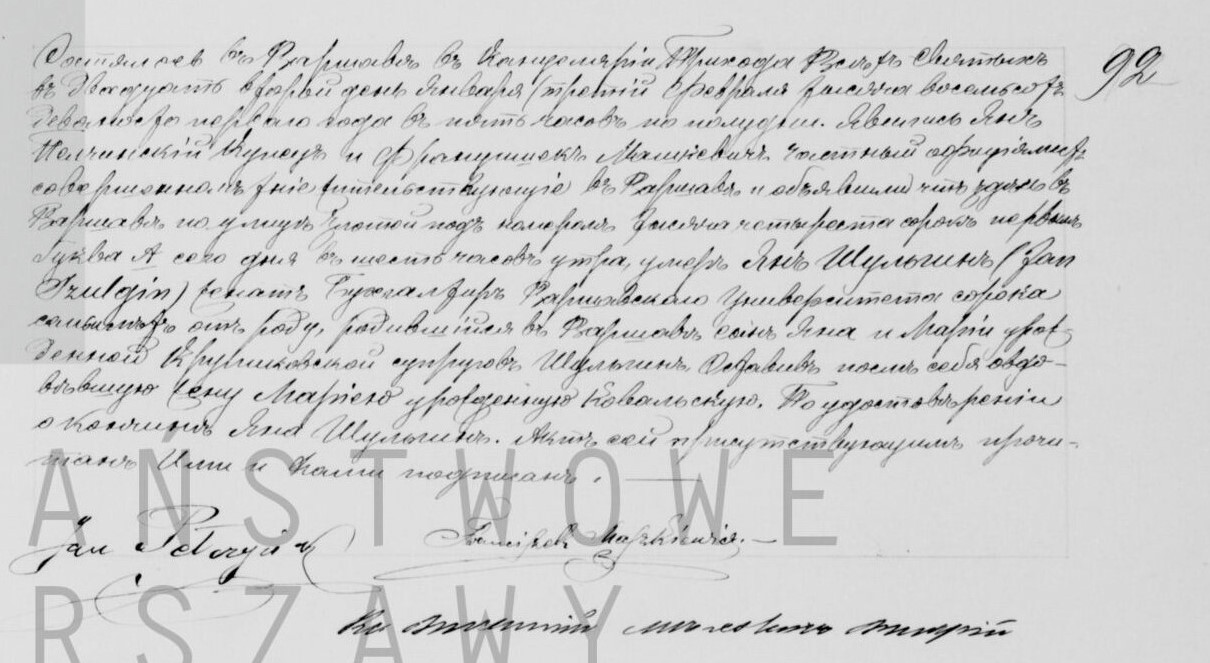 Состоялось въ Варшавѣ въ Канцеляріи Прихода Всѣхъ Святыхъ
92
въ двадцать второй день Января (третій Февраля) тысяча восемьсотъ
девяносто перваго года въ пять часовъ по полудни. Явились Янъ
Пелчинскій Купецъ и Францишекъ Машкевичъ частный оффиціялистъ
совершеннолѣтніе жительствующіе въ Варшавѣ и объявили что здѣсь въ
Варшавѣ по улицѣ Злотой подъ номеромъ тысяча четыреста сорокъ первымъ
буква А сего дня въ шесть часовъ утра, умеръ Янъ Шульгинъ (Jan
Szulgin) женатъ Бухгалтеръ Варшавскаго Университета сорока
семь лѣтъ отъ роду, родившійся въ Варшавѣ сынъ Яна и Маріи урож-
денной Крушковской супруговъ Шульгинъ. Оставивъ послѣ себя овдо-
вѣвшую жену Марію урожденную Ковальскую. По удостовѣреніи
о кончинѣ Яна Шульгинъ. Актъ сей присутствующимъ прочи-
танъ Ими и Нами подписанъ.
Jan Pełczyński
Franciszek Maszkiewicz.
AŃSTWOWE
RSZAWY